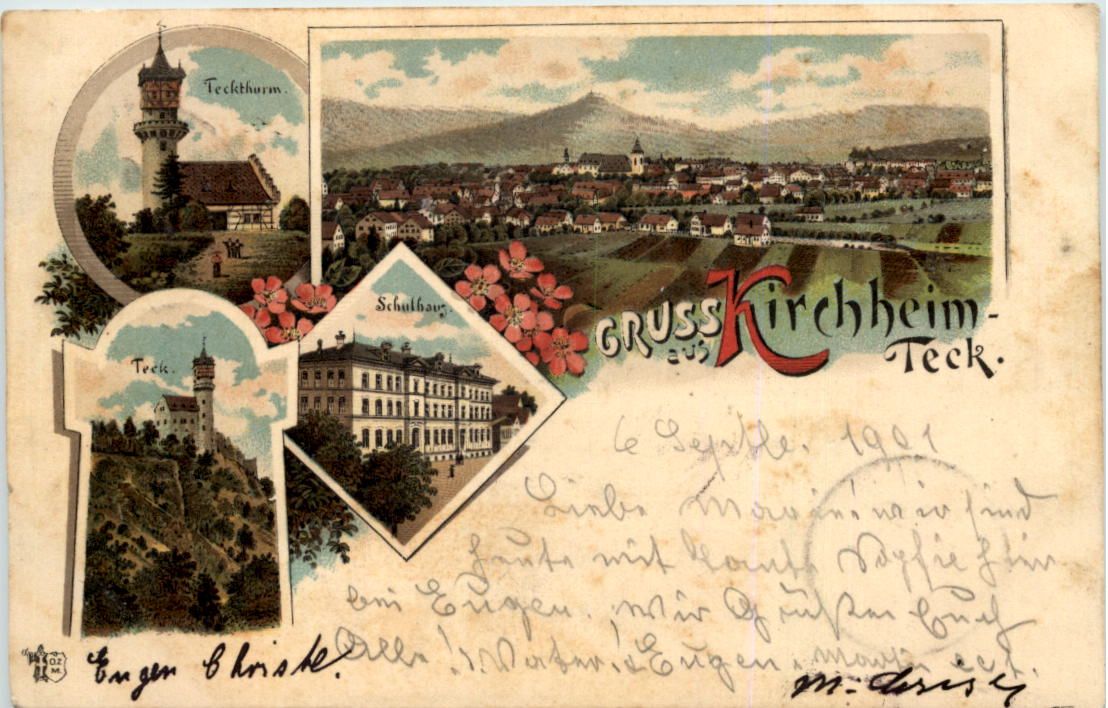 Teckthurm.
Schulhaus.
Teck.
GRUSS aus Kirchheim-
Teck.
6 Septbe. 1901
Liebe Marie! wir sind
heute mit Tante Sophie hier
bei Eugen. Wir Grüßen Euch
Alle! Vater! Eugen,
Eugen Christ
O.Z.
M.